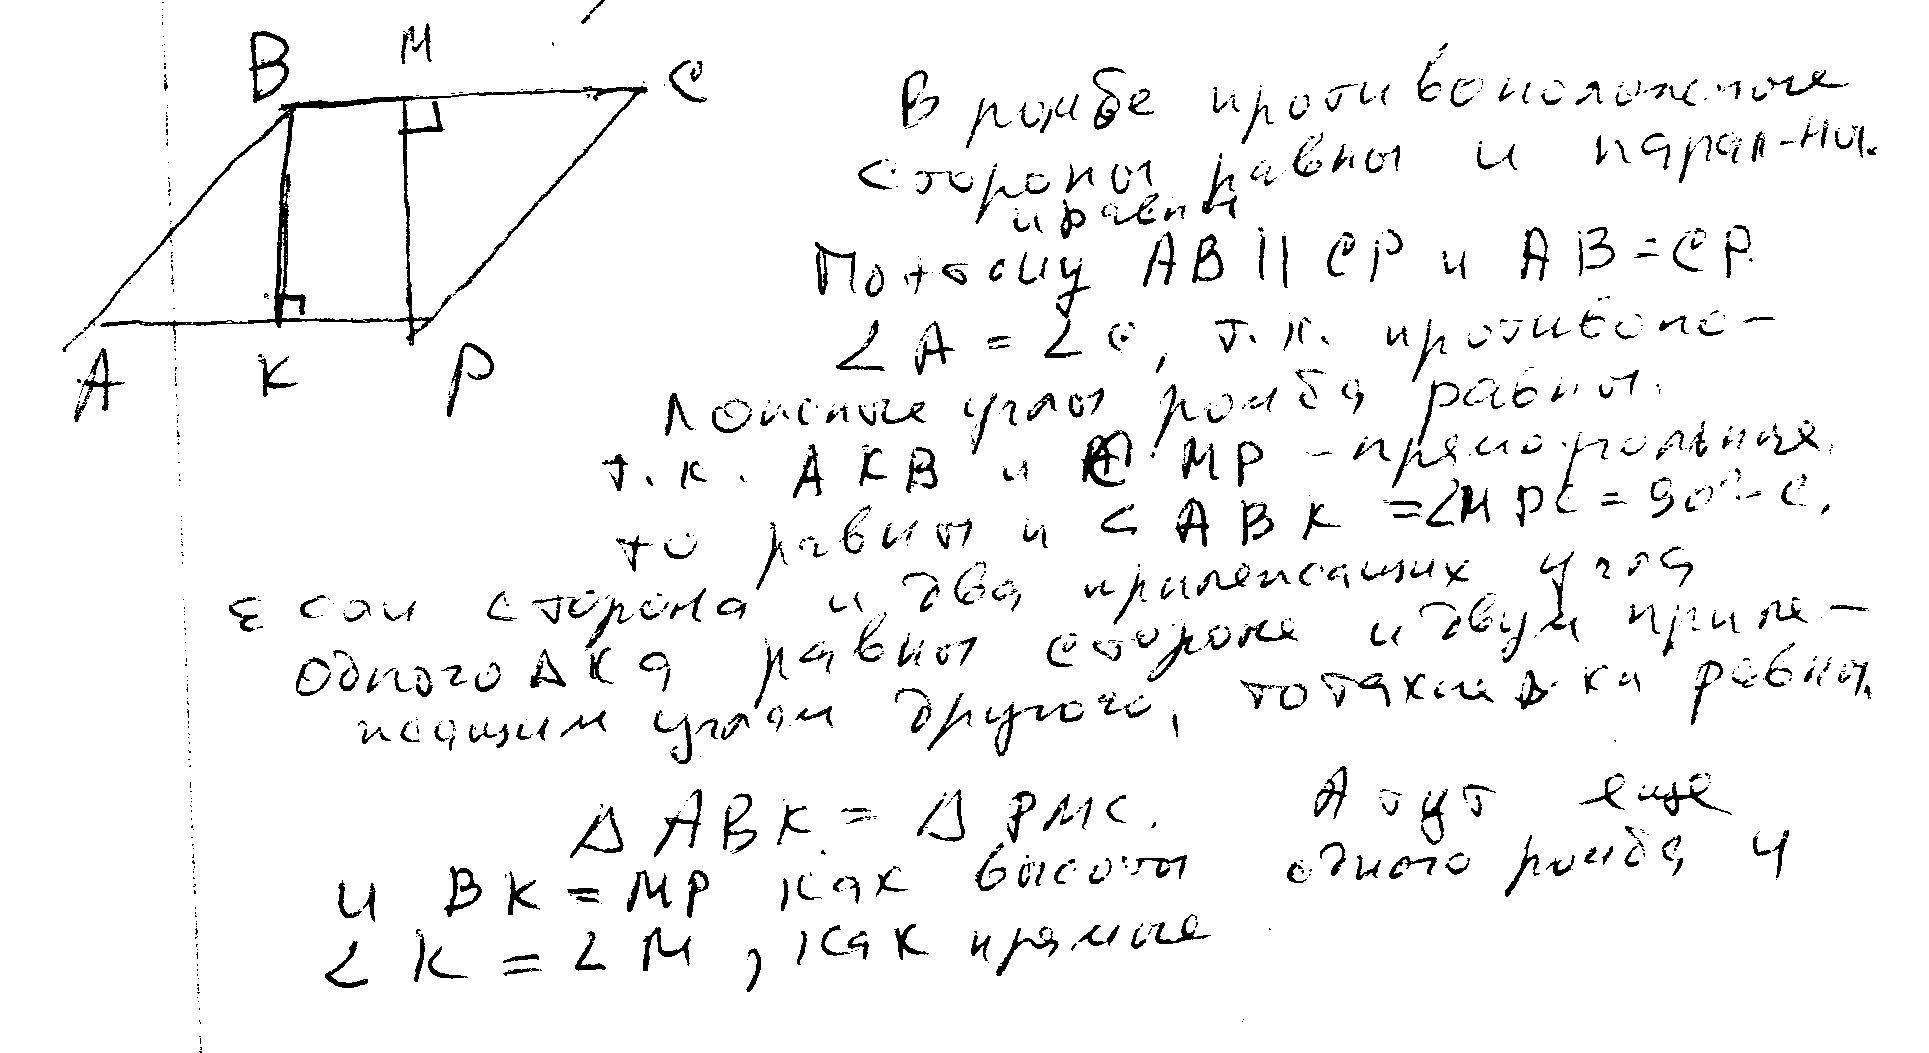 B M C
A K P
В ромбе противоположные
стороны равны и парал-ны.
и равны
Поэтому AB || CP и AB = CP.
∠A = ∠C, т.к. противопо-
ложные углы ромба равны.
т.к. AKB и CMP - прямоугольные,
то равны и ∠ABK = ∠MPC = 90° - C.
Если сторона и два прилежащих угла
одного Δка равны стороне и двум приле-
жащим углам другого, то такие Δ-ки равны.
ΔABK = ΔPMC. А тут еще
и BK = MP как высоты одного ромба и
∠K = ∠M, как прямые